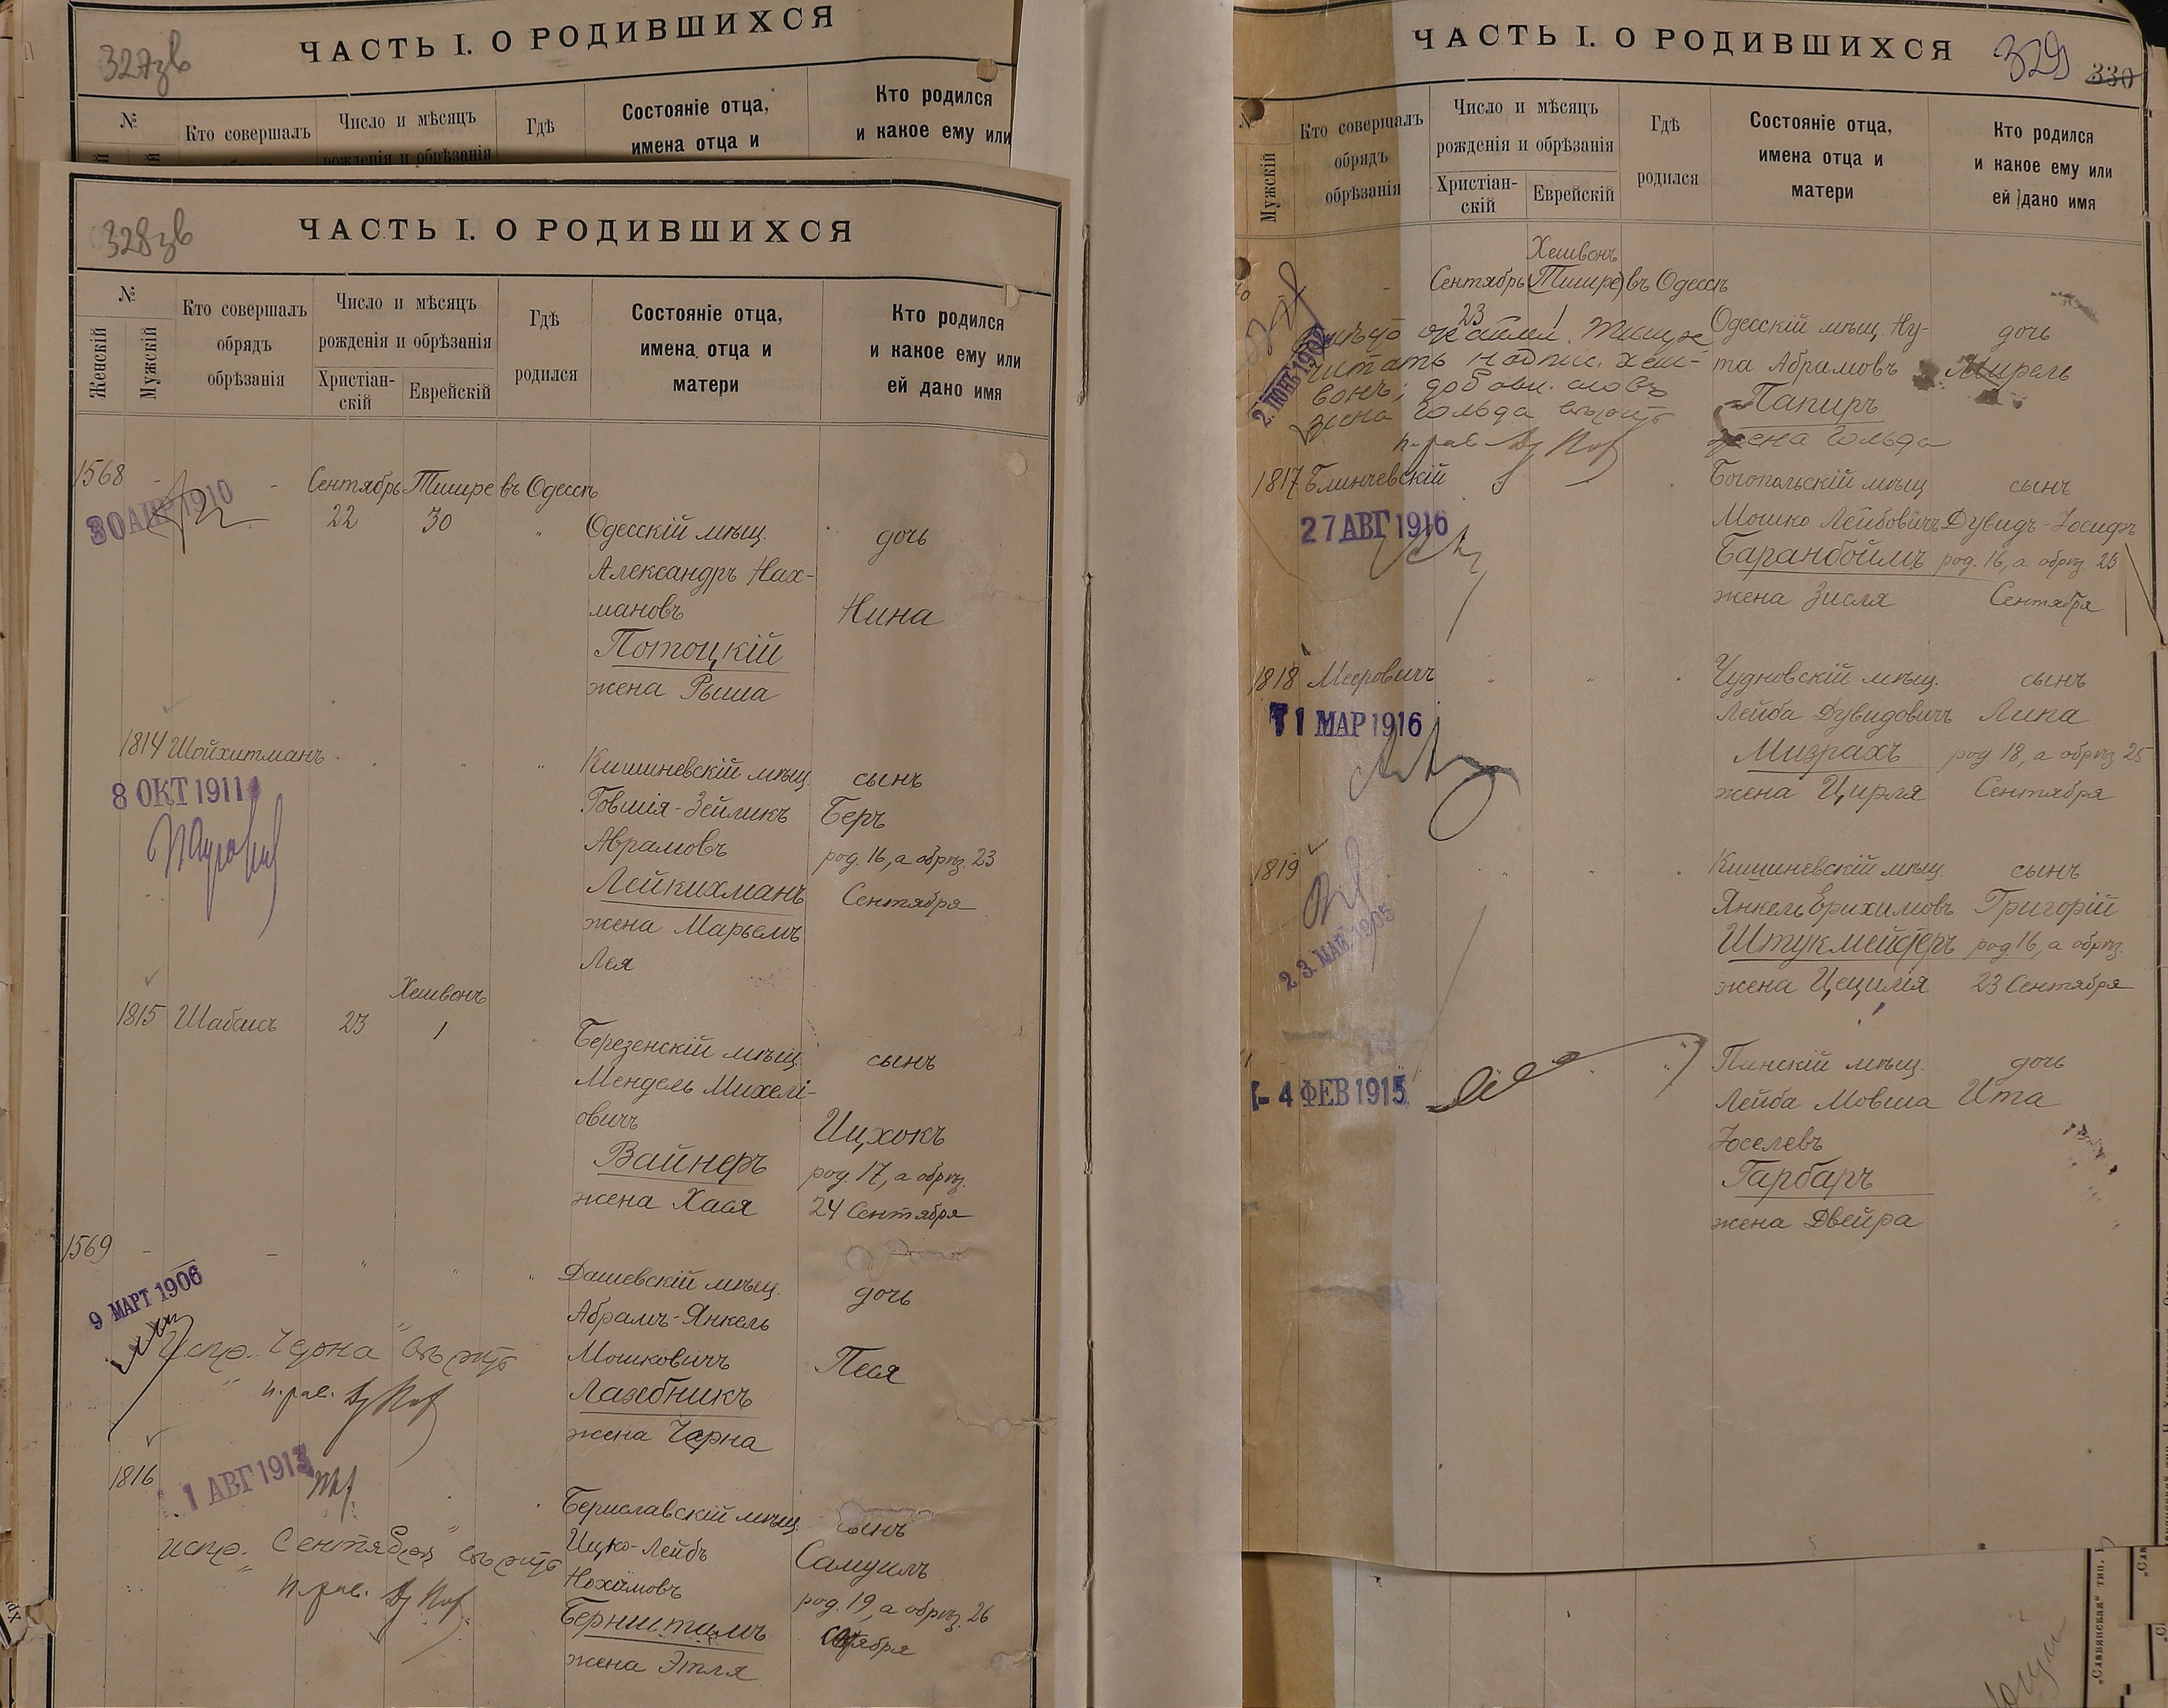 327зв
ЧАСТЬ I. О РОДИВШИХСЯ
№
Кто совершалъ
Число и мѣсяцъ
рожденія и обрѣзанія
Гдѣ
Состояніе отца,
имена отца и
Кто родился
и какое ему или
328зв
ЧАСТЬ I. О РОДИВШИХСЯ
№
Женскій
Мужскій
Кто совершалъ
обрядъ
обрѣзанія
Число и мѣсяцъ
рожденія и обрѣзанія
Христіан-
скій
Еврейскій
Гдѣ
родился
Состояніе отца,
имена отца и
матери
Кто родился
и какое ему или
ей дано имя
1568 - - Сентябрь Тишре въ Одессѣ
30 АПР 1910
22 30 " Одесскій мѣщ. дочь
Александръ Нах-
мановъ Нина
Потоцкій
жена Рыша
1814 Шойхитманъ " " " Кишиневскій мѣщ. сынъ
8 ОКТ 1911
Товшія-Зейликъ Беръ
Аврамовъ род. 16, а обрѣз. 23
Лейкихманъ Сентября
жена Марьемъ
Лея
Хешвонъ
1815 Шабсисъ 23 1 " Березенскій мѣщ. сынъ
Мендель Михелі-
овичъ Ицхокъ
Вайнеръ род. 17, а обрѣз.
жена Хася 24 Сентября
1569 - - " " " Дашевскій мѣщ. дочь
9 МАРТ 1906
Абрамъ-Янкель
Мошковичъ Песя
Лазебникъ
жена Черна
Испр. "Черна" вѣрить
п. рав.
1816 Бериславскій мѣщ. сынъ
1 АВГ 1913
Ицко-Лейбъ Самуилъ
Нохимовъ род. 19, а обрѣз. 26
Бернштамъ
жена Этля
испр. "Сентября" вѣрить
п. рав.
ЧАСТЬ I. О РОДИВШИХСЯ
329
330
Мужскій
Кто совершалъ
обрядъ
обрѣзанія
Число и мѣсяцъ
рожденія и обрѣзанія
Христіан-
скій
Еврейскій
Гдѣ
родился
Состояніе отца,
имена отца и
матери
Кто родился
и какое ему или
ей дано имя
Хешвонъ
Сентябрь (Тишре) въ Одессѣ
23 1 Одесскій мѣщ. Ну- дочь
та Абрамовъ Мирель
Папиръ
жена Гольда
Тишре
читать надпис. Хеш-
вонъ; добавл. слова
жена Гольда вѣрить
п. рав.
2. ИЮН 190
1817 Блинчевскій Богопольскій мѣщ сынъ
27 АВГ 1916
Мошко Лейбовичъ Дувидъ-Іосифъ
Баранбоймъ род. 16, а обрѣз 23
жена Зисля Сентября
1818 Мееровичъ " " " Чудновскій мѣщ. сынъ
1 МАР 1916
Лейба Дувидовичъ Липа
Мизрахъ род 18, а обрѣз 25
жена Цирля Сентября
1819 " " " Кишиневскій мѣщ. сынъ
23. МАЙ 1905
Янкель Ерихимовъ Григорій
Штукмейстеръ род 16, а обрѣз.
жена Цецилія 23 Сентября
- 4 ФЕВ 1915
Пинскій мѣщ. дочь
Лейба Мовша Ита
Іоселевъ
Гарбаръ
жена Двейра
„Славянская“ тип.